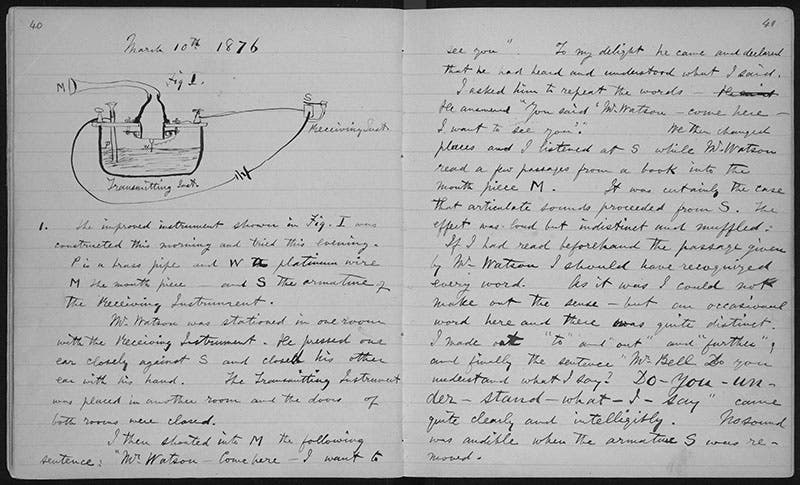 40
March 10th 1876
Fig 1.
M
S
Receiving Inst.
P
W
Transmitting Inst.
1. The improved instrument shown in Fig. I was
constructed this morning and tried this evening.
P is a brass pipe and W the platinum wire
M the mouth piece — and S the armature of
the Receiving Instrument.
Mr. Watson was stationed in one room
with the Receiving Instrument. He pressed one
ear closely against S and closed his other
ear with his hand. The Transmitting Instrument
was placed in another room and the doors of
both rooms were closed.
I then shouted into M the following
sentence: "Mr. Watson — Come here — I want to
41
see you". To my delight he came and declared
that he had heard and understood what I said.
I asked him to repeat the words —
He answered "You said 'Mr. Watson — come here —
I want to see you'." We then changed
places and I listened at S while Mr. Watson
read a few passages from a book into the
mouth piece M. It was certainly the case
that articulate sounds proceeded from S. The
effect was loud but indistinct and muffled.
If I had read beforehand the passage given
by Mr. Watson I should have recognized
every word. As it was I could not
make out the sense — but an occasional
word here and there was quite distinct.
I made out "to" and "out" and "further";
and finally the sentence "Mr. Bell Do you
understand what I say? Do — you — un-
der — stand — what — I — say" came
quite clearly and intelligibly. No sound
was audible when the armature S was re-
moved.